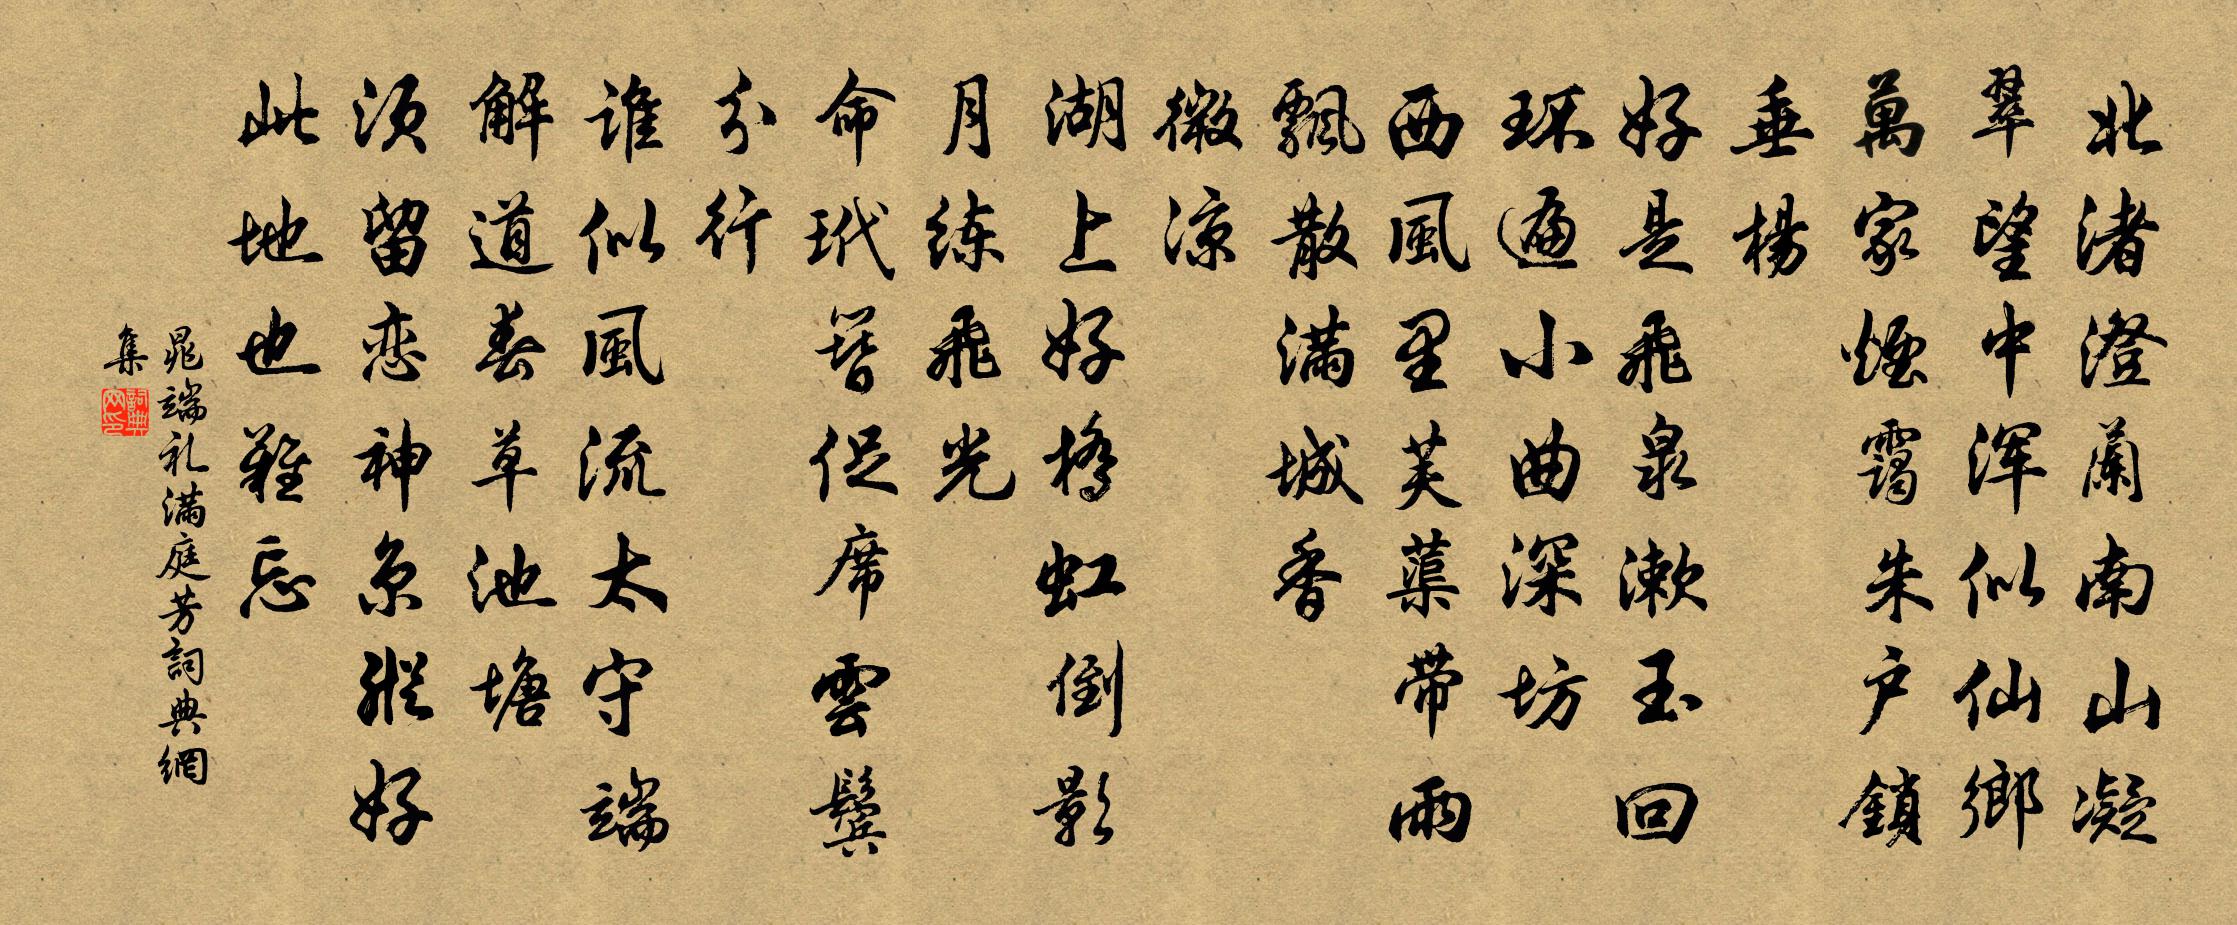 北渚澄蘭南山凝
翠望中浑似仙鄉
萬家煙靄朱户鎖
垂楊
好是飛泉漱玉回
环遍小曲深坊
西風里芙蕖带雨
飄散满城香
微凉
湖上好橋虹倒影
月练飛光
命玳簪促席雲鬓
分行
谁似風流太守端
解道春草池塘
须留恋神京縱好
此地也難忘
晁端礼满庭芳詞典網
集
詞典網印